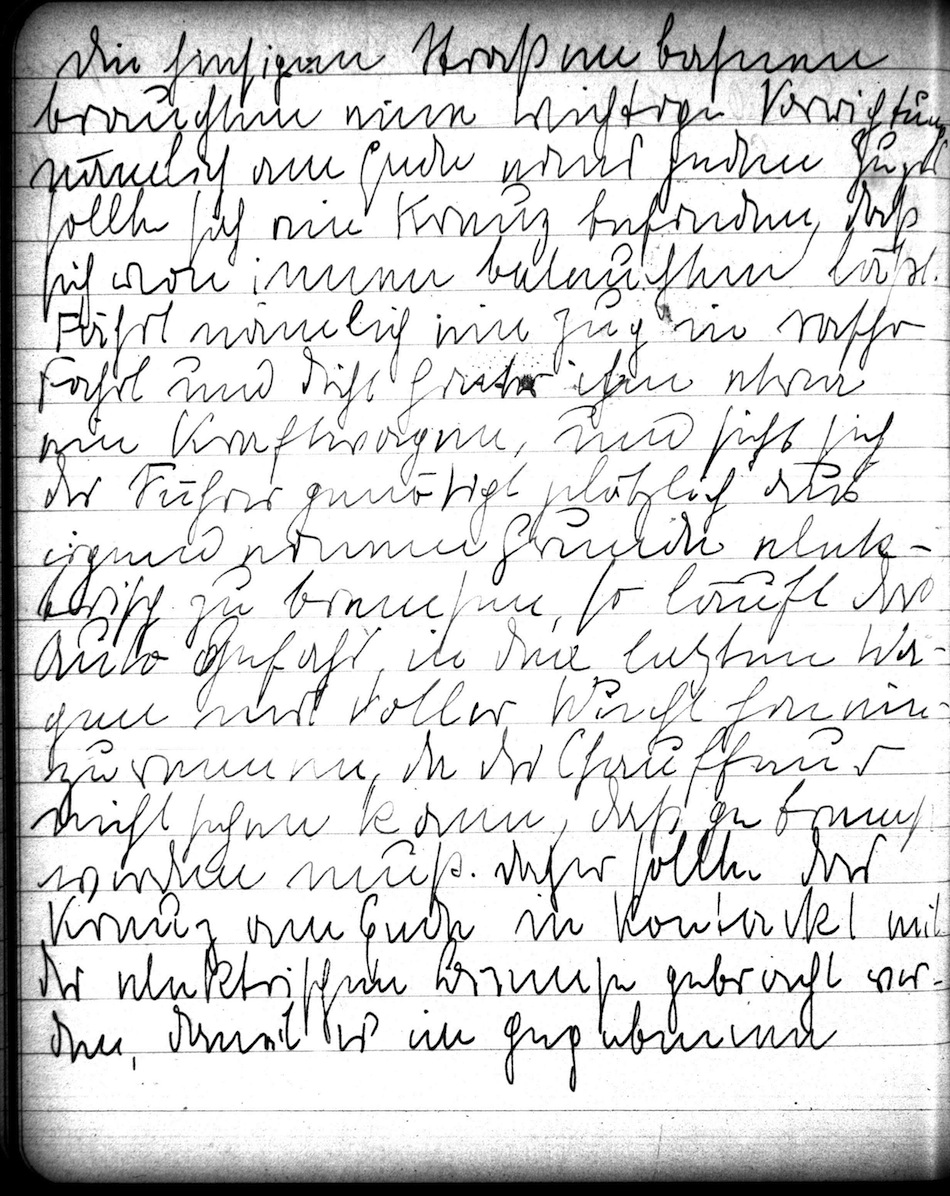 Die hiesigen Straßenbahnen
brauchten eine wichtige Vorrichtung
nämlich am Ende eines jeden Zuges
sollte sich ein Kreuz befinden, daß
sich von innen beleuchten läßt.
Fährt nämlich ein Zug in rascher
Fahrt und dicht hinter ihm etwa
ein Kraftwagen, und sieht sich
der Führer genötigt plötzlich aus
irgend einem Grunde elek-
trisch zu bremsen, so läuft das
Auto Gefahr, in den letzten Wa-
gen mit voller Wucht hinein-
zurennen, da der Chauffeur
nicht sehen kann, daß gebremst
werden muß. Daher sollte das
Kreuz am Ende in Kontackt mit
der elektrischen Bremse gebracht wer-
den, damit es im gegebenen